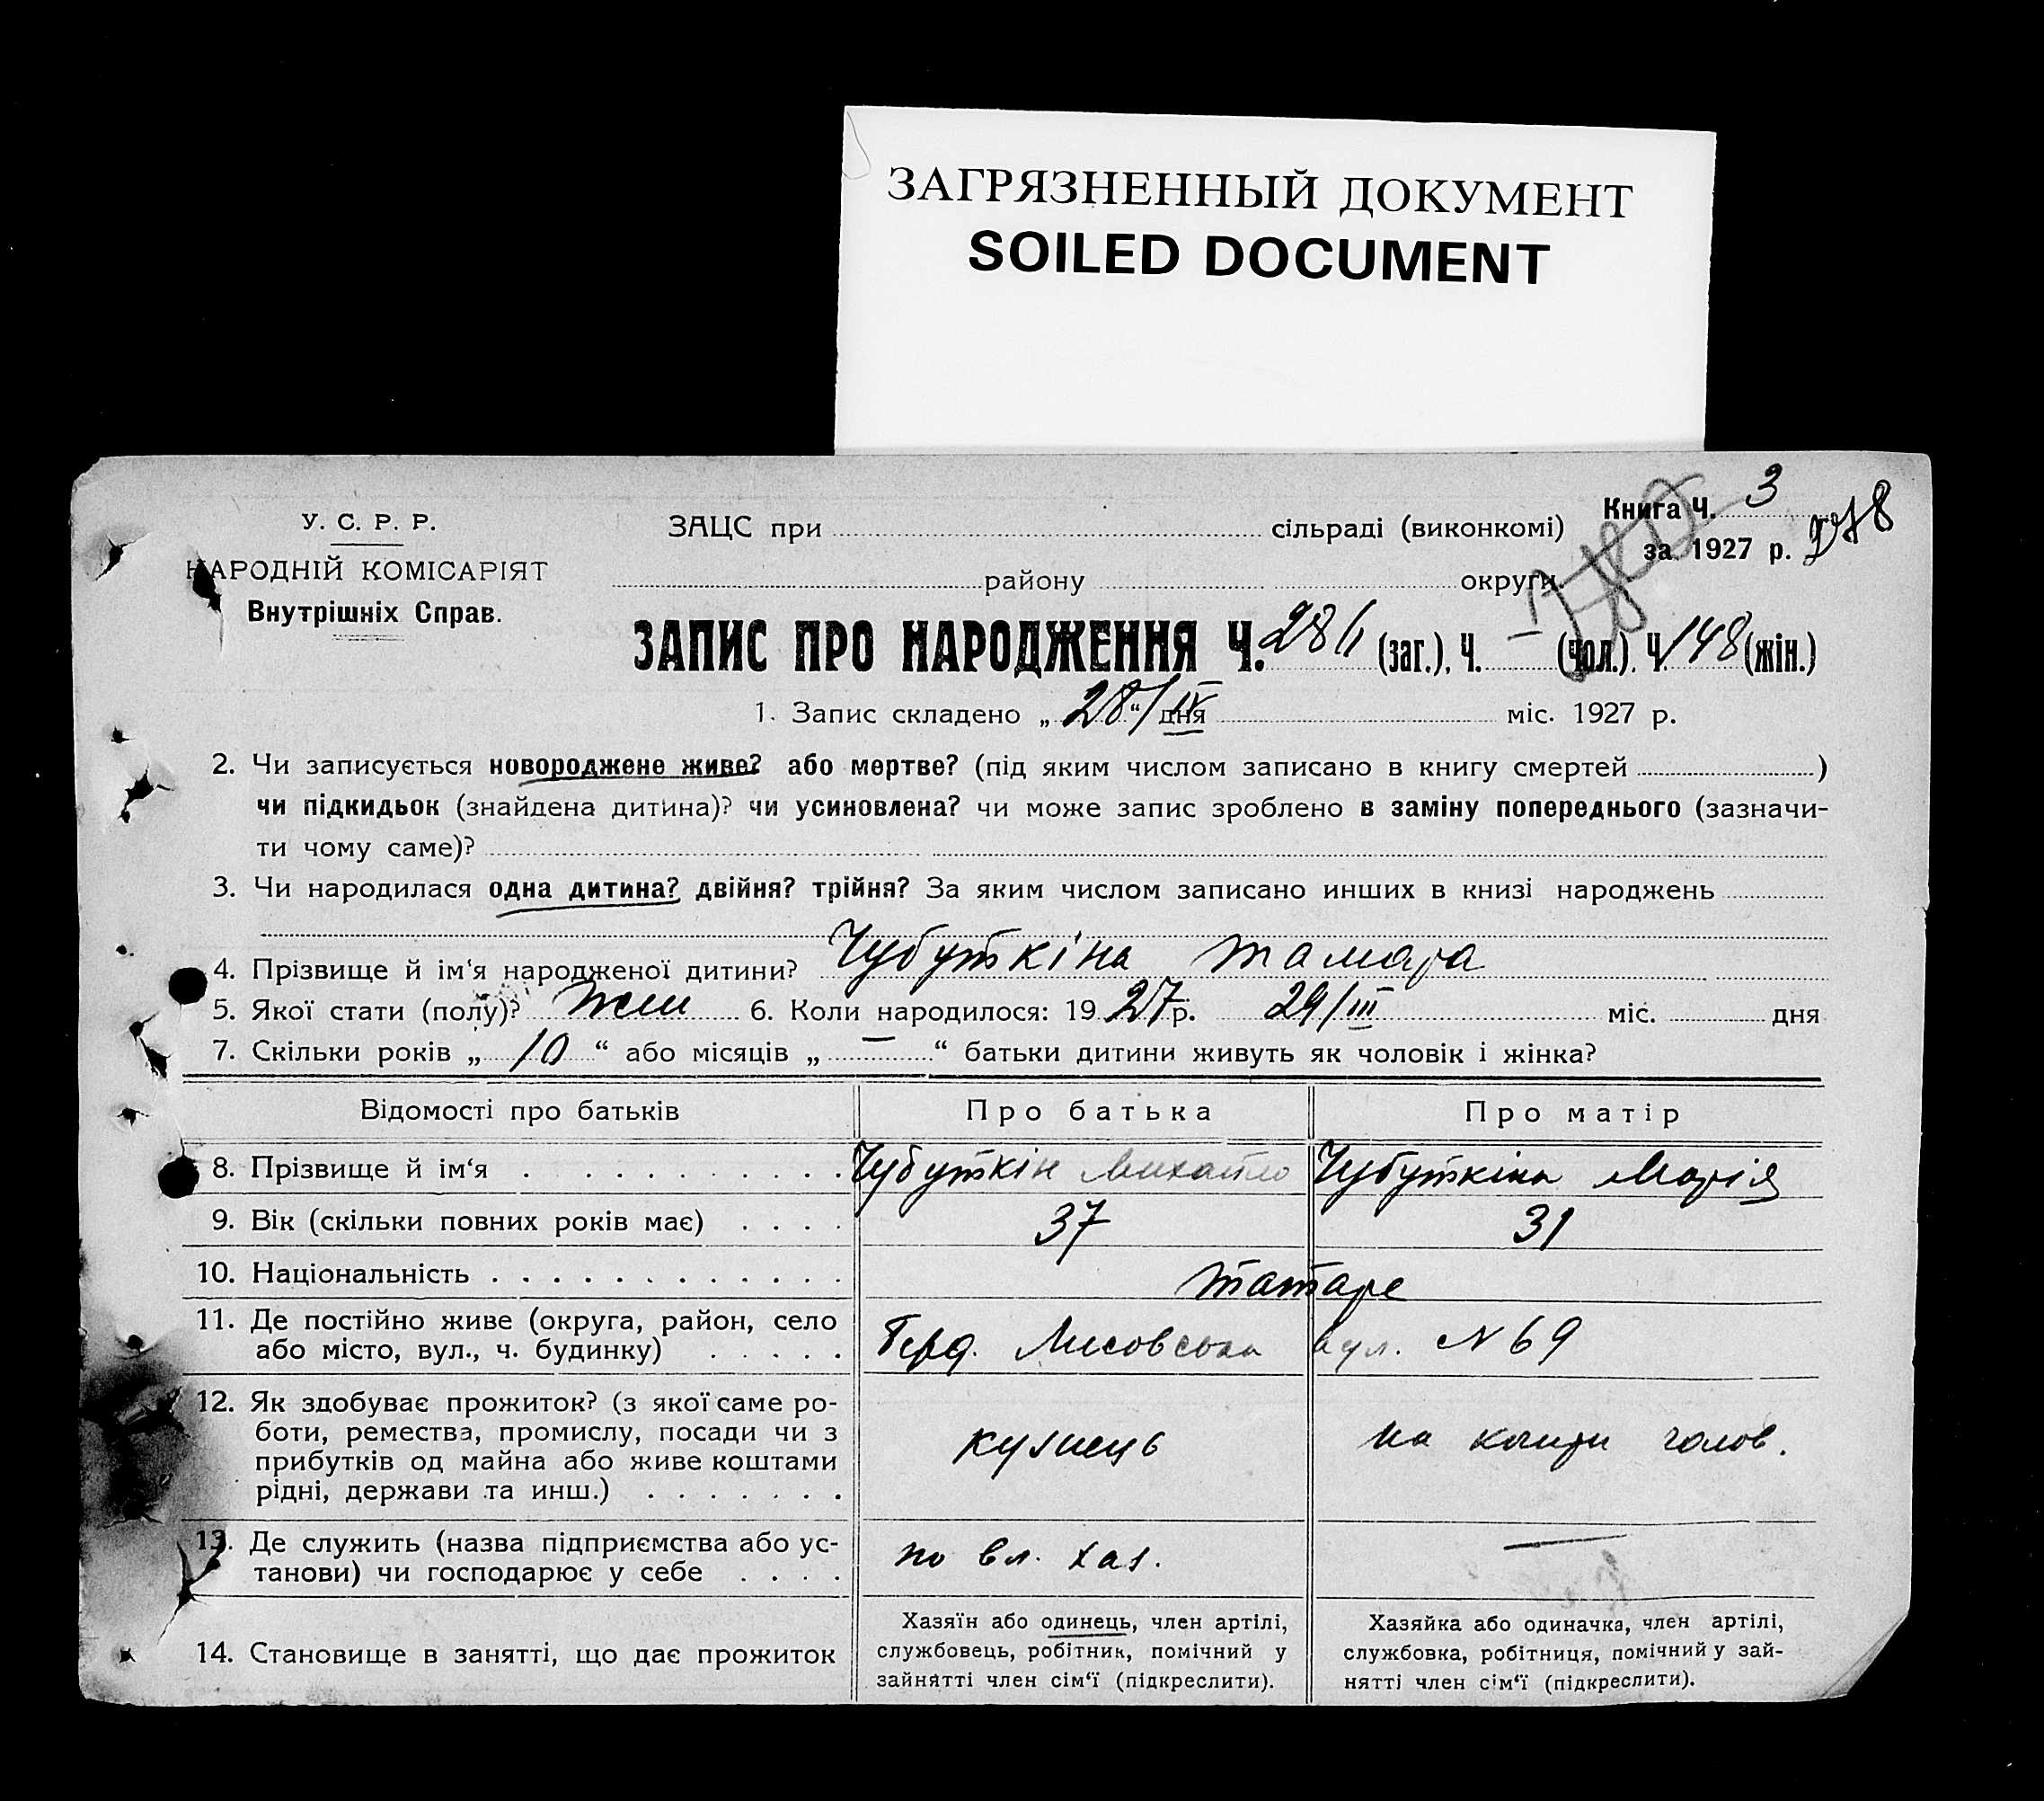 ЗАГРЯЗНЕННЫЙ ДОКУМЕНТ
SOILED DOCUMENT
У. С. Р. Р.
НАРОДНІЙ КОМІСАРІЯТ
Внутрішніх Справ.
ЗАЦС при сільраді (виконкомі)
району округи
Книга Ч. 3
за 1927 р.
ЗАПИС ПРО НАРОДЖЕННЯ Ч. (заг.), Ч. — (чол.), Ч. 148 (жін.)
1. Запис складено „ 28/IV “ дня міс. 1927 р.
2. Чи записується новороджене живе? або мертве? (під яким числом записано в книгу смертей )
чи підкидьок (знайдена дитина)? чи усиновлена? чи може запис зроблено в заміну попереднього (зазначи-
ти чому саме)?
3. Чи народилася одна дитина? двійня? трійня? За яким числом записано инших в книзі народжень
4. Прізвище й ім‘я народженої дитини? Чубуткіна Тамара
5. Якої стати (полу)? жін 6. Коли народилося: 19 27 р. 29/III міс. дня
7. Скільки років „ 10 “ або місяців „ — “ батьки дитини живуть як чоловік і жінка?
Відомості про батьків Про батька Про матір
8. Прізвище й ім‘я Чубуткін Михайло Чубуткіна Марія
9. Вік (скільки повних років має) 37 31
10. Національність татаре
11. Де постійно живе (округа, район, село
або місто, вул., ч. будинку) Лисовська вул. N 69
12. Як здобуває прожиток? (з якої саме ро-
боти, ремества, промислу, посади чи з
прибутків од майна або живе коштами
рідні, держави та инш.) кузнець на кошти чолов.
13. Де служить (назва підприємства або ус-
танови) чи господарює у себе по вл. хаз. —
14. Становище в занятті, що дає прожиток
Хазяїн або одинець, член артілі,
службовець, робітник, помічний у
зайнятті член сім‘ї (підкреслити).
Хазяйка або одиначка, член артілі,
службовка, робітниця, помічний у зай-
нятті член сім‘ї (підкреслити).